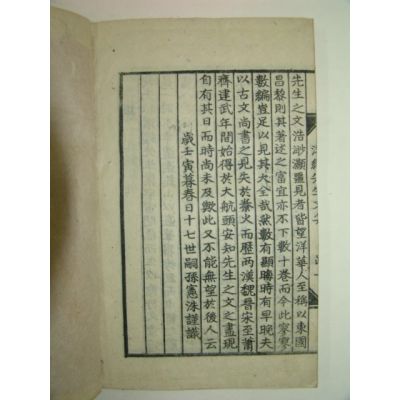 先生之文浩渺灝噩見者皆望洋華人至稱以東國
昌黎則其著述之富宜亦不下數十卷而今此寥寥
數編豈足以見其大全哉然數有顯晦時有早晚夫
以古文尚書之見失於秦火而歷兩漢魏晉宋至蕭
齊建武年間始得於大航頭安知先生之文之盡現
自有其日而時尚未及歟此又不能無望於後人云
歲壬寅暮春日十七世嗣孫憲洙謹識